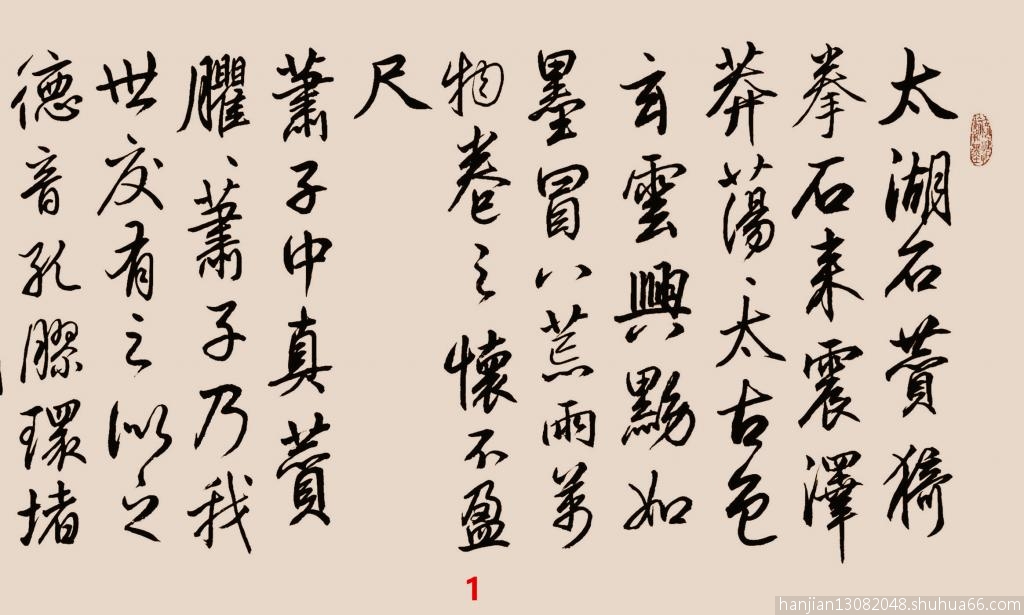 太湖石薲猗
拳石来震澤
莽蕩、太古色
玄雲興黝如
墨冒八荒雨萬
物卷之懷不盈
尺
蕭子中真薲
臞、蕭子乃我
世交有之似之
德音孔膠環堵
1
hanjian13082048.shuhua66.com